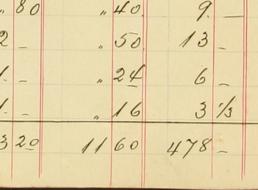 " 80 " 40. 9. —
2 — " 50 13 —
1. — " 24 6 —
1. — " 16 3 1/3
3 20 11 60 478 —